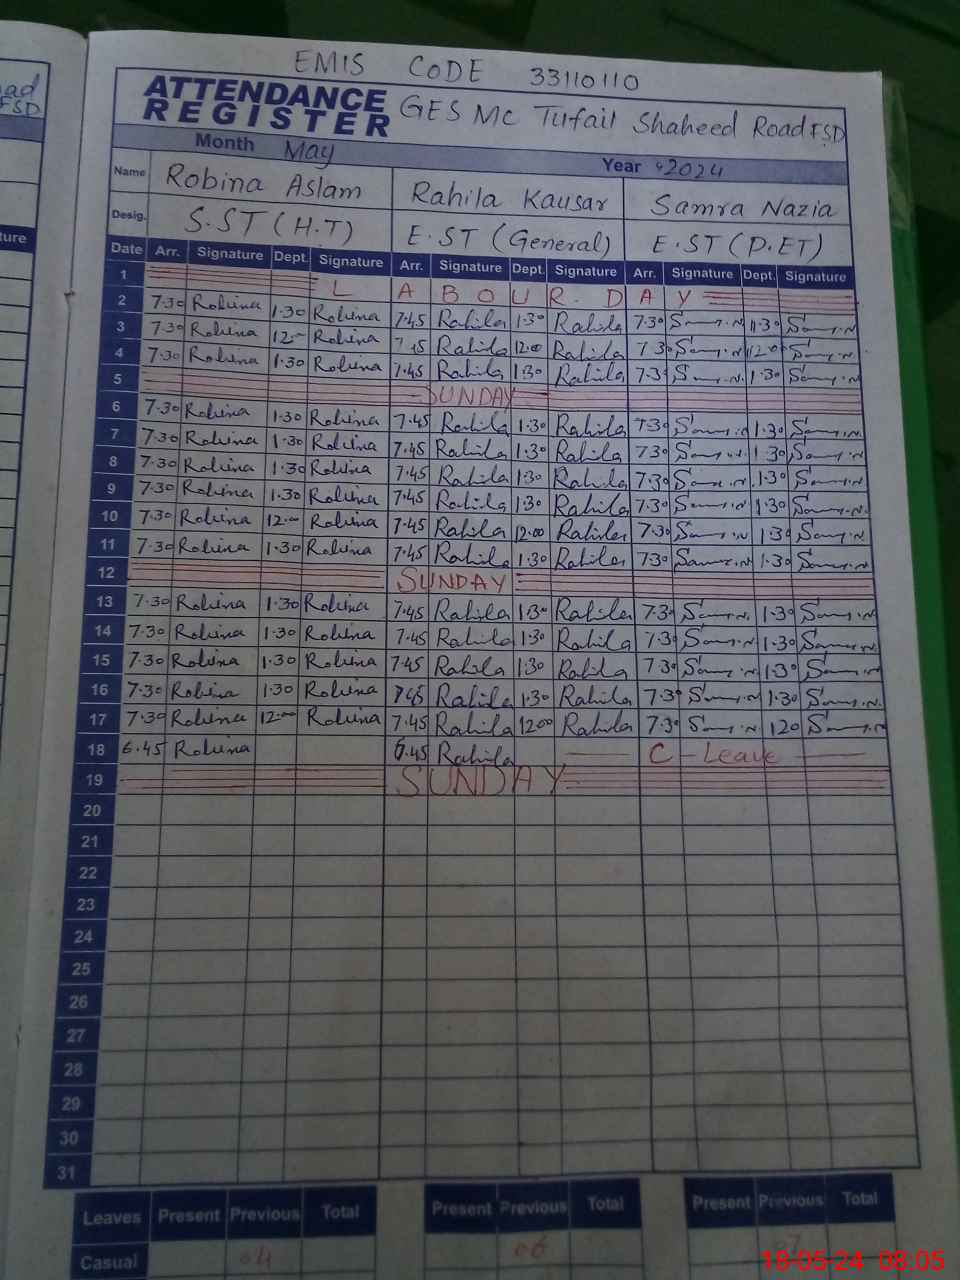 EMIS CODE 33110110
ATTENDANCE REGISTER GES MC Tufail Shaheed Road FSD
Month May Year 2024
Name Robina Aslam Rahila Kausar Samra Nazia
Desig. S.ST (H.T) E.ST (General) E.ST (P.ET)
Date Arr. Signature Dept. Signature Arr. Signature Dept. Signature Arr. Signature Dept. Signature
1 LABOUR DAY
2 7.30 Robina 1.30 Robina 7.45 Rahila 1.30 Rahila 7.30 1.30
3 7.30 Robina 12.00 Robina 7.45 Rahila 12.00 Rahila 7.30 12.00
4 7.30 Robina 1.30 Robina 7.45 Rahila 1.30 Rahila 7.30 1.30
5 SUNDAY
6 7.30 Robina 1.30 Robina 7.45 Rahila 1.30 Rahila 7.30 1.30
7 7.30 Robina 1.30 Robina 7.45 Rahila 1.30 Rahila 7.30 1.30
8 7.30 Robina 1.30 Robina 7.45 Rahila 1.30 Rahila 7.30 1.30
9 7.30 Robina 1.30 Robina 7.45 Rahila 1.30 Rahila 7.30 1.30
10 7.30 Robina 12.00 Robina 7.45 Rahila 12.00 Rahila 7.30 1.30
11 7.30 Robina 1.30 Robina 7.45 Rahila 1.30 Rahila 7.30 1.30
12 SUNDAY
13 7.30 Robina 1.30 Robina 7.45 Rahila 1.30 Rahila 7.30 1.30
14 7.30 Robina 1.30 Robina 7.45 Rahila 1.30 Rahila 7.30 1.30
15 7.30 Robina 1.30 Robina 7.45 Rahila 1.30 Rahila 7.30 1.30
16 7.30 Robina 1.30 Robina 7.45 Rahila 1.30 Rahila 7.30 1.30
17 7.30 Robina 12.00 Robina 7.45 Rahila 12.00 Rahila 7.30 120
18 6.45 Robina 6.45 Rahila C-Leave
19 SUNDAY
20
21
22
23
24
25
26
27
28
29
30
31
Leaves Present Previous Total Present Previous Total Present Previous Total
Casual 04 06 07
18-05-24 08:05